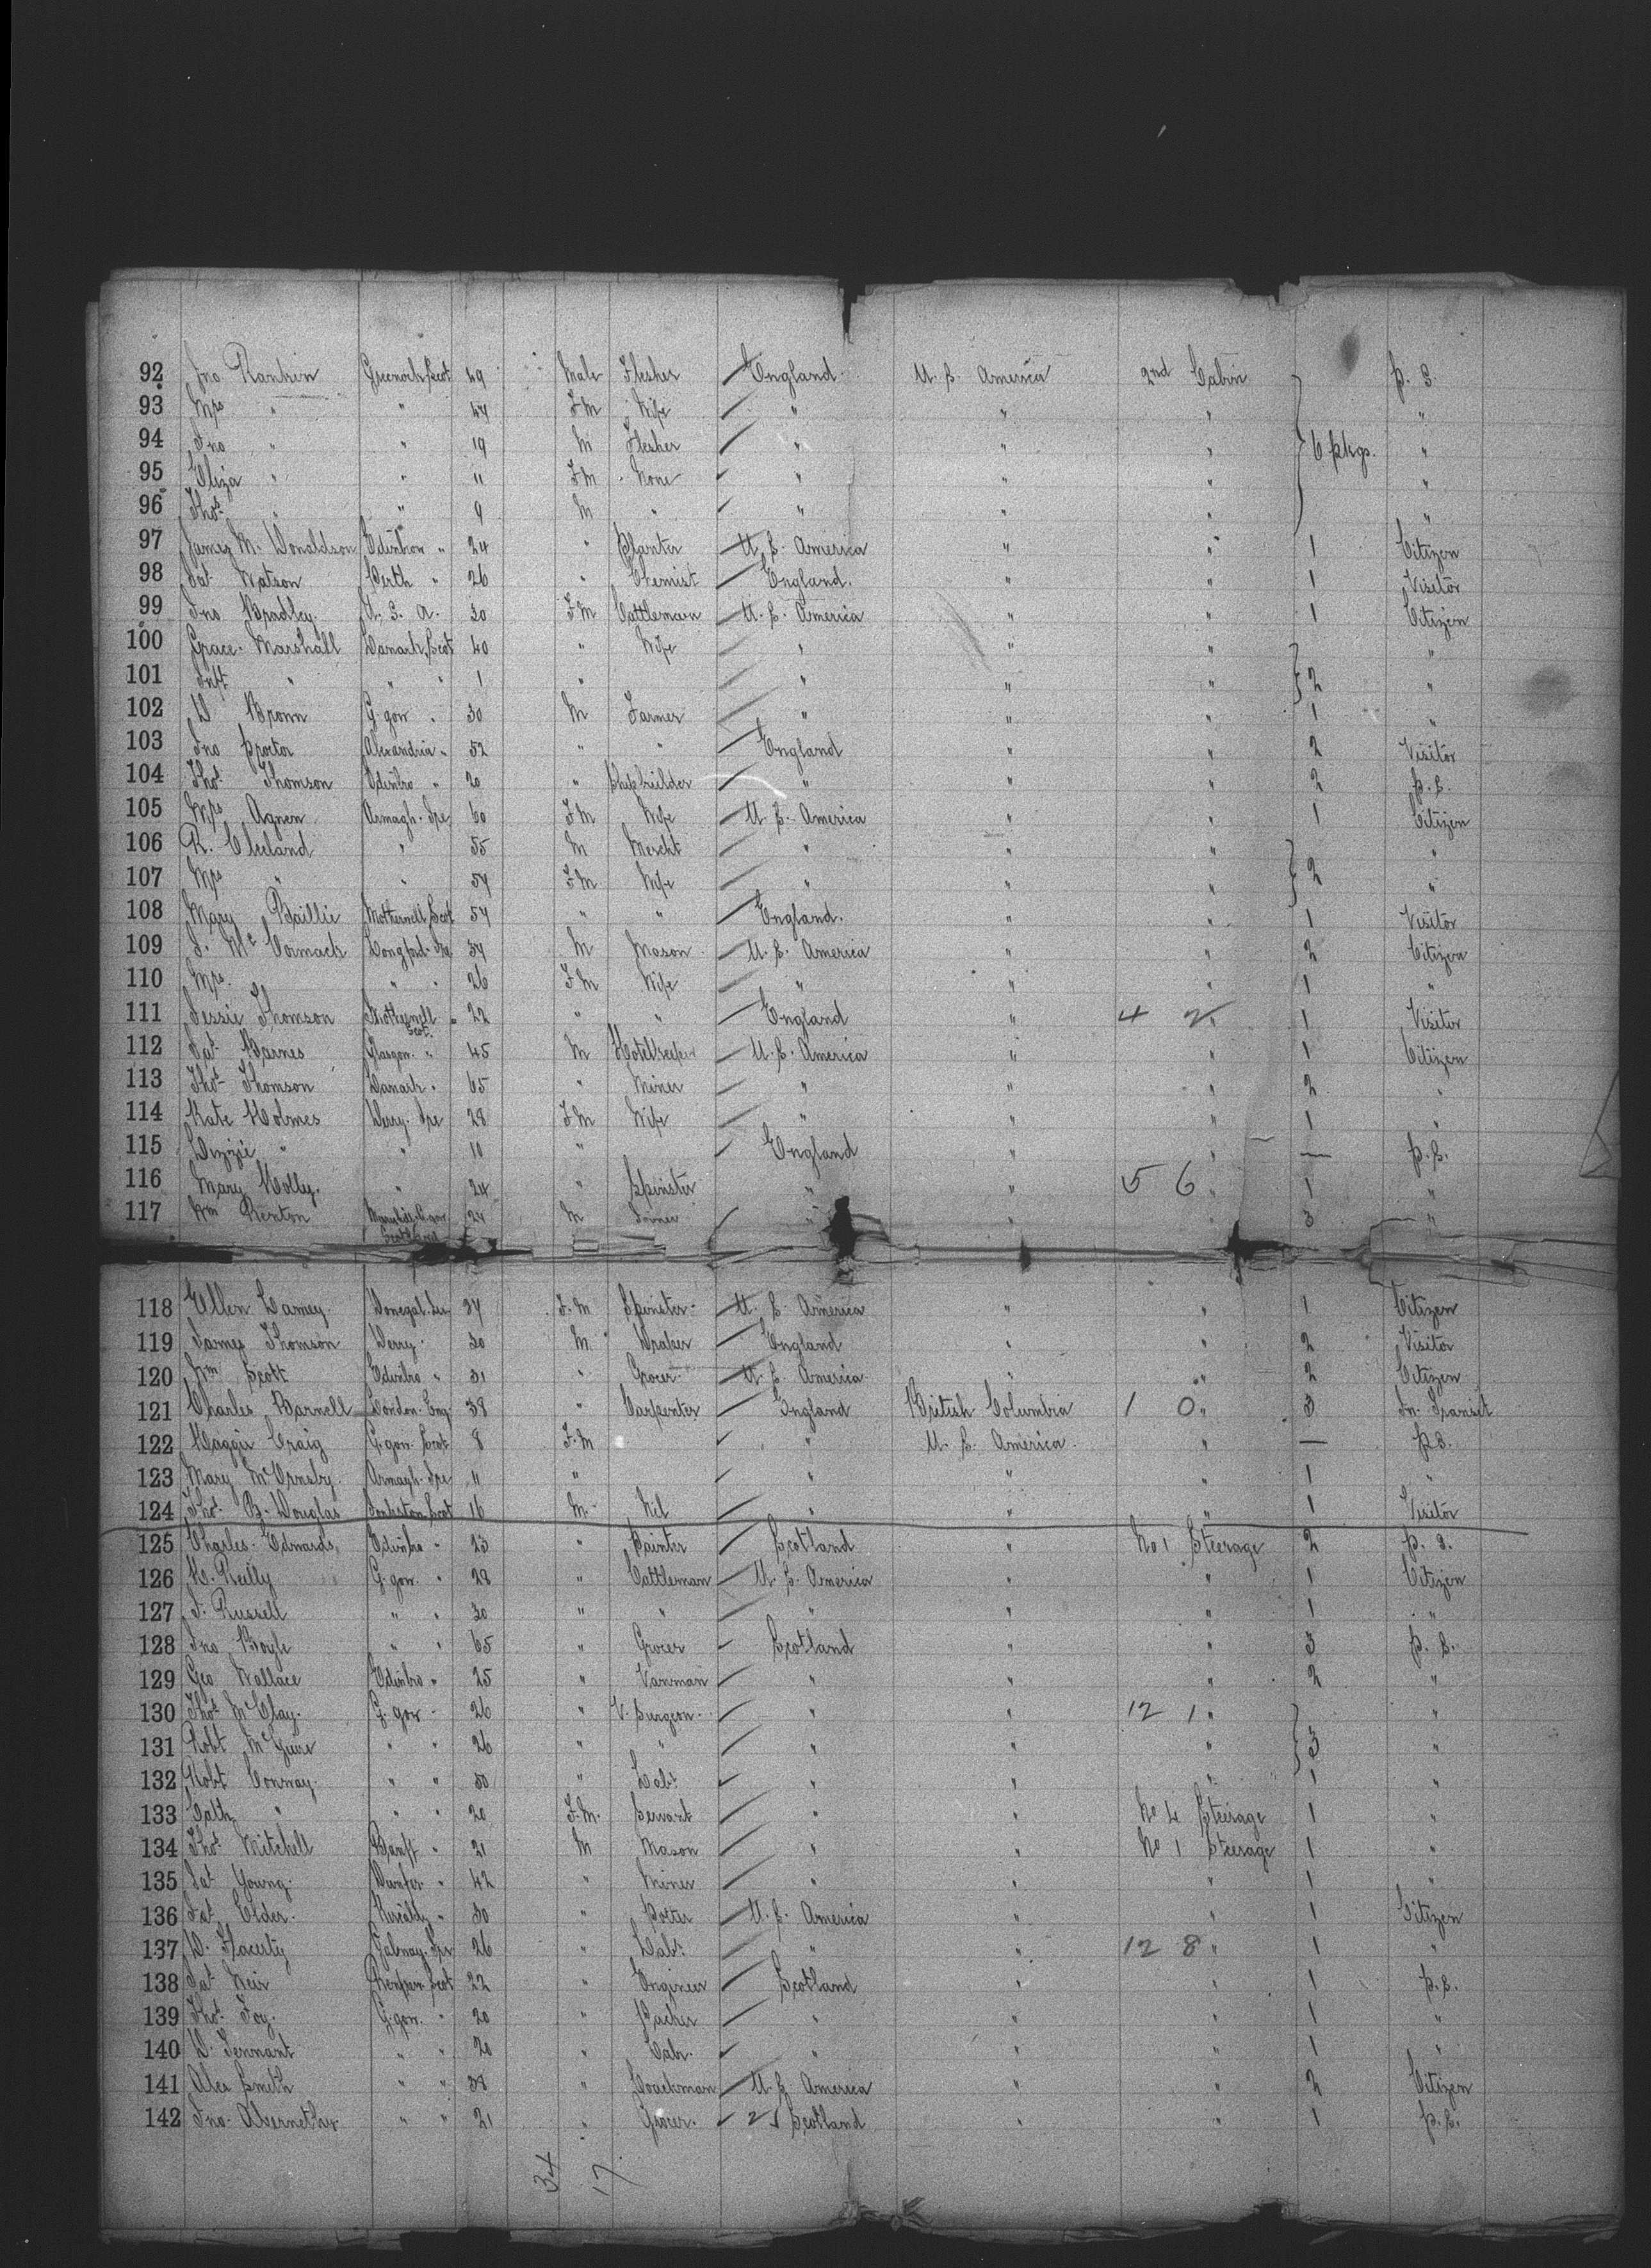 92 Jno Rankin Greenock, Scot 49 Male Flesher England U. S. America 2nd Cabin P. S.
93 Mrs " " 44 F M Wife " " " "
94 Jno " " 19 M Flesher " " " 6 pkgs. "
95 Eliza " " 11 F M None " " " "
96 Thos. " " 9 M " " " " "
97 James M. Donaldson " 24 " Planter U. S. America " " 1 Citizen
98 Jas. Watson Perth " 26 " Chemist England. " " 1 Visitor
99 Jno Bradley. U. S. A. 30 F M Cattleman U. S. America " " 1 Citizen
100 Grace Marshall Lanark, Scot 40 " Wife " " " "
101 Inft " " " 1 " " " " 2 "
102 D Brown G. gow " 30 M Farmer " " " 1 "
103 Jno Proctor Alexandria " 52 " " England " " 2 Visitor
104 Thos. Thomson Edinbro " 20 " Shipbuilder " " " 2 P. S.
105 Mrs Agnew Armagh. Ire 60 F M Wife U. S. America " " 1 Citizen
106 R. Cleeland " 55 M Mercht " " " "
107 Mrs " " 54 F M Wife " " " 2 "
108 Mary Baillie Motherwell, Scot 54 " " England. " " 1 Visitor
109 J. Mc Cormack Longford. Ire 34 M Mason U. S. America " " 2 Citizen
110 Mrs. " " 26 F M Wife " " " 1 "
111 Jessie Thomson Motherwell Scot. 22 " " England " 4 2 " 1 Visitor
112 Jas. Barnes Glasgow. " 45 M Hotelkeeper U. S. America " " 1 Citizen
113 Thos. Thomson Lanark. " 65 " Miner " " " 2 "
114 Kate Holmes Derry. Ire 28 F M Wife " " " 1 "
115 Lizzie " " 10 " England " " — P. S.
116 Mary Holly. " 24 " Spinster " " 5 6 " 1 "
117 Wm Renton 24 M " " " 3 "
118 Ellen Lamey. Donegal. Ire 34 F. M Spinster U. S. America " " 1 Citizen
119 James Thomson Derry. 30 M Draper England " " 2 Visitor
120 Wm Scott Edinbro " 31 " Grocer U. S. America " " 2 Citizen
121 Charles Barnell London. Eng. 38 " Carpenter England British Columbia 1 0 " 3 In Transit
122 Maggie Craig G. gow. Scot 8 F. M " U. S. America. " — P. S.
123 Mary Armagh. Ire 11 " " " " 1 "
124 Thos. B. Douglas Scot 16 M. Nil " " " 1 Visitor
125 Charles Edwards, Edinbro " 23 " Painter Scotland " No 1 Steerage 2 P. S.
126 H. Reilly G. gow. " 28 " Cattleman U. S. America " " 1 Citizen
127 J. Russell " " 30 " " " " " 1 "
128 Jno Boyle " " 65 " Grocer Scotland " " 3 P. S.
129 Geo Wallace Edinbro " 25 " Vanman " " " 2 "
130 Thos. McClay. G. gow " 26 " V. Surgeon. " " 12 1 " "
131 Robt McGuire " " 26 " " " " " 3 "
132 Robt Conway. " " 50 " Labr. " " " 1 "
133 Cath " " " 20 F. M. Servant " " No 4 Steerage 1 "
134 Thos. Mitchell Banff " 21 M Mason " " No 1 Steerage 1 "
135 Jas. Young. " 42 " Miner " " " 1 "
136 Jas. Elder. " 30 " Porter U. S. America " " 1 Citizen
137 D. Flaverty Galway. Ire 26 " Labr. " " 12 8 " 1 "
138 Jas. Weir Renfrew. Scot 22 " Engineer Scotland " " 1 P. S.
139 Thos. Foy. G. gow. " 20 " Packer " " " 1 "
140 D. Tennant " " 20 " Labr. " " " 1 "
141 Alex Smith " " 38 " Coachman U. S. America " " 2 Citizen
142 Jno. Abernethy " " 21 " Grocer. Scotland " " 1 P. S.
34 17